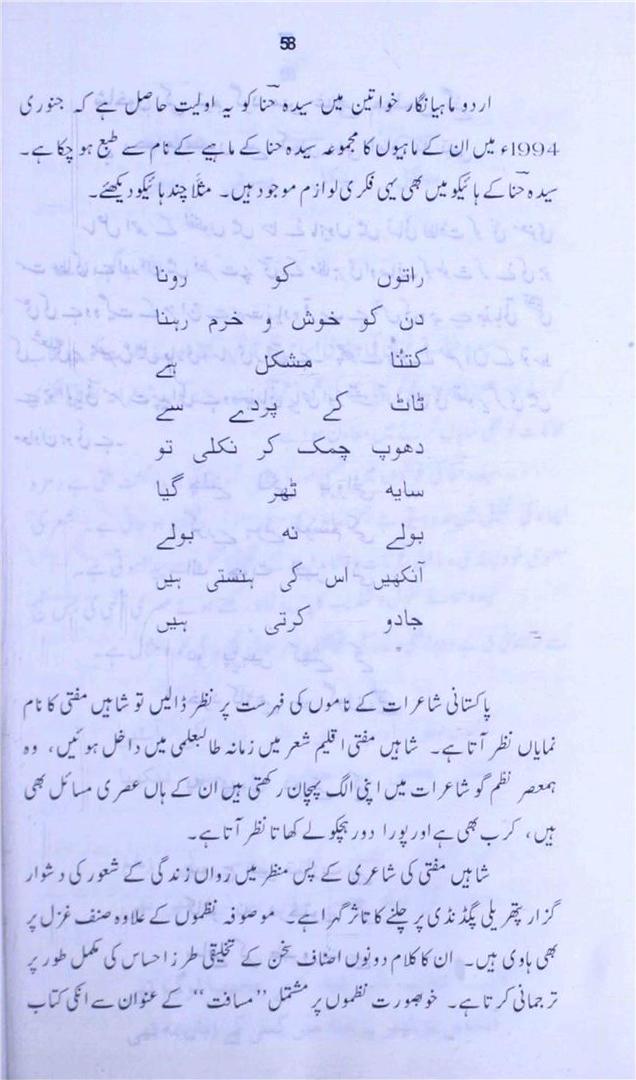 58
اردو ماہیا نگار خواتین میں سیدہ حنا کو یہ اولیت حاصل ہے کہ جنوری
1994ء میں ان کے ماہیوں کا مجموعہ سیدہ حنا کے ماہیے کے نام سے طبع ہو چکا ہے۔
سیدہ حنا کے ہائیکو میں بھی یہی فکری لوازم موجود ہیں۔ مثلاً چند ہائیکو دیکھئے۔
راتوں کو رونا
دن کو خوش و خرم رہنا
کتنا مشکل ہے
ٹاٹ کے پردے سے
دھوپ چمک کر نکلی تو
سایہ ٹھر گیا
بولے نہ بولے
آنکھیں اس کی ہنستی ہیں
جادو کرتی ہیں
پاکستانی شاعرات کے ناموں کی فہرست پر نظر ڈالیں تو شاہین مفتی کا نام
نمایاں نظر آتا ہے۔ شاہین مفتی اقلیم شعر میں زمانہ طالبعلمی میں داخل ہوئیں، وہ
ہمعصر نظم گو شاعرات میں اپنی الگ پہچان رکھتی ہیں ان کے ہاں عصری مسائل بھی
ہیں، کرب بھی ہے اور پورا دور ہچکولے کھاتا نظر آتا ہے۔
شاہین مفتی کی شاعری کے پس منظر میں رواں زندگی کے شعور کی دشوار
گزار پتھریلی پگڈنڈی پر چلنے کا تاثر گہرا ہے۔ موصوفہ نظموں کے علاوہ صنف غزل پر
بھی ہاوی ہیں۔ ان کا کلام دونوں اصناف سخن کے تخلیقی طرز احساس کی مکمل طور پر
ترجمانی کرتا ہے۔ خوبصورت نظموں پر مشتمل ”مسافت“ کے عنوان سے انکی کتاب